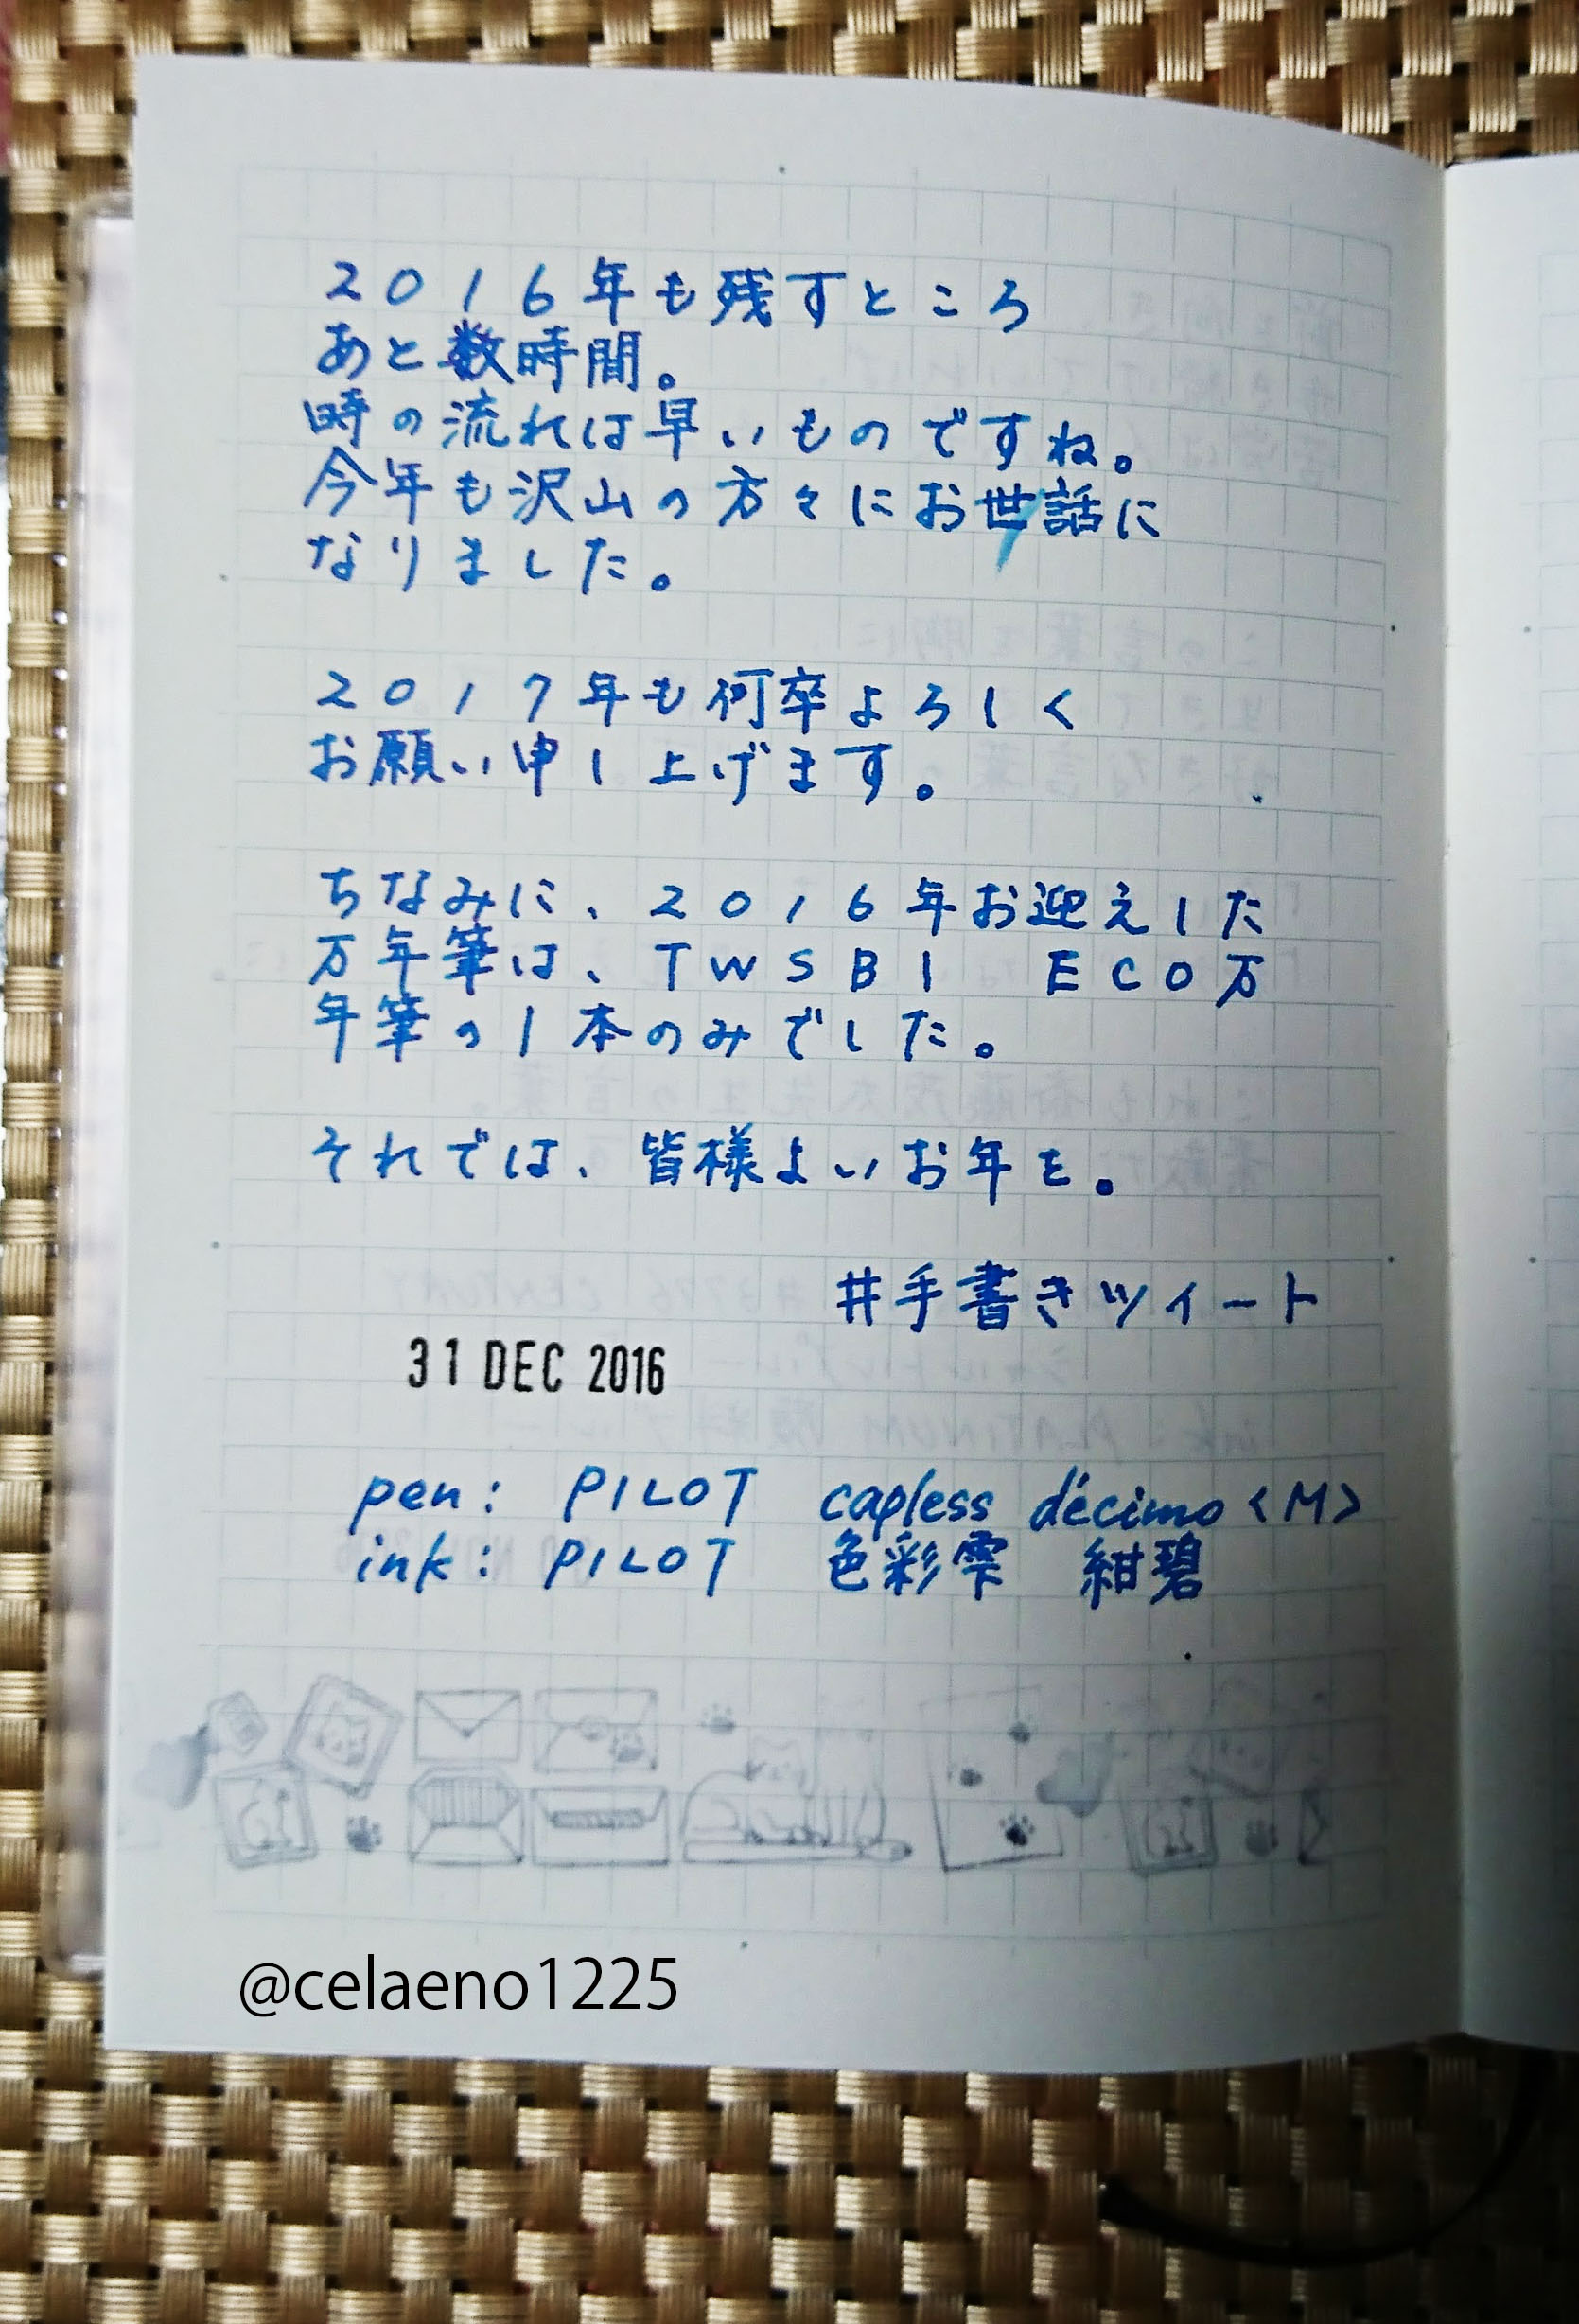 2016年も残すところ
あと数時間。
時の流れは早いものですね。
今年も沢山の方々にお世話に
なりました。
2017年も何卒よろしく
お願い申し上げます。
ちなみに、2016年お迎えした
万年筆は、TWSBI ECO万
年筆の1本のみでした。
それでは、皆様よいお年を。
#手書きツイート
31 DEC 2016
pen: PILOT capless décimo <M>
ink: PILOT 色彩雫 紺碧
@celaeno1225